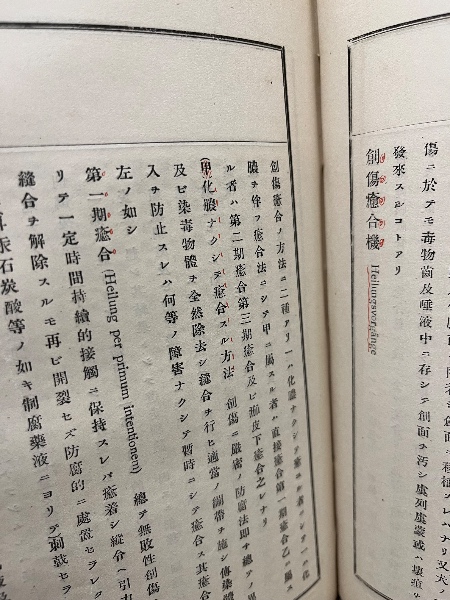 傷ニ於テモ毒物齒及唾液中ニ存シテ創面ヲ汚シ
發來スルコトアリ
創傷癒合機 Heilungsvorgänge
創傷癒合ノ方法ニ二種アリ一ハ化膿ナクシテ癒
膿ヲ伴フ癒合法ニシテ甲ニ屬スル者ハ直接癒合第一期癒合乙ニ屬ス
ル者ハ第二期癒合第三期癒合及ビ痂皮下癒合之レナリ
(甲)化膿ナクシテ癒合スル方法 創傷ニ嚴密ノ防腐法即チ總テノ異
及ビ染毒物體ヲ全然除去シ縫合ヲ行ヒ適當ノ繃帶ヲ施シ傳染體
入ヲ防止スレハ何等ノ障害ナクシテ暫時ニシテ癒合ス其癒合
左ノ如シ
第一期癒合 (Heilung per primum intentionem) 總テ無敗性創傷
リテ一定時間持續的接觸ニ保持スレバ癒着シ縫合ヘ引
縫合ヲ解除スルモ再ビ開裂セズ防腐的ニ處置セラレ
石炭酸等ノ如キ制腐藥液ニヨリテ刺戟セラ